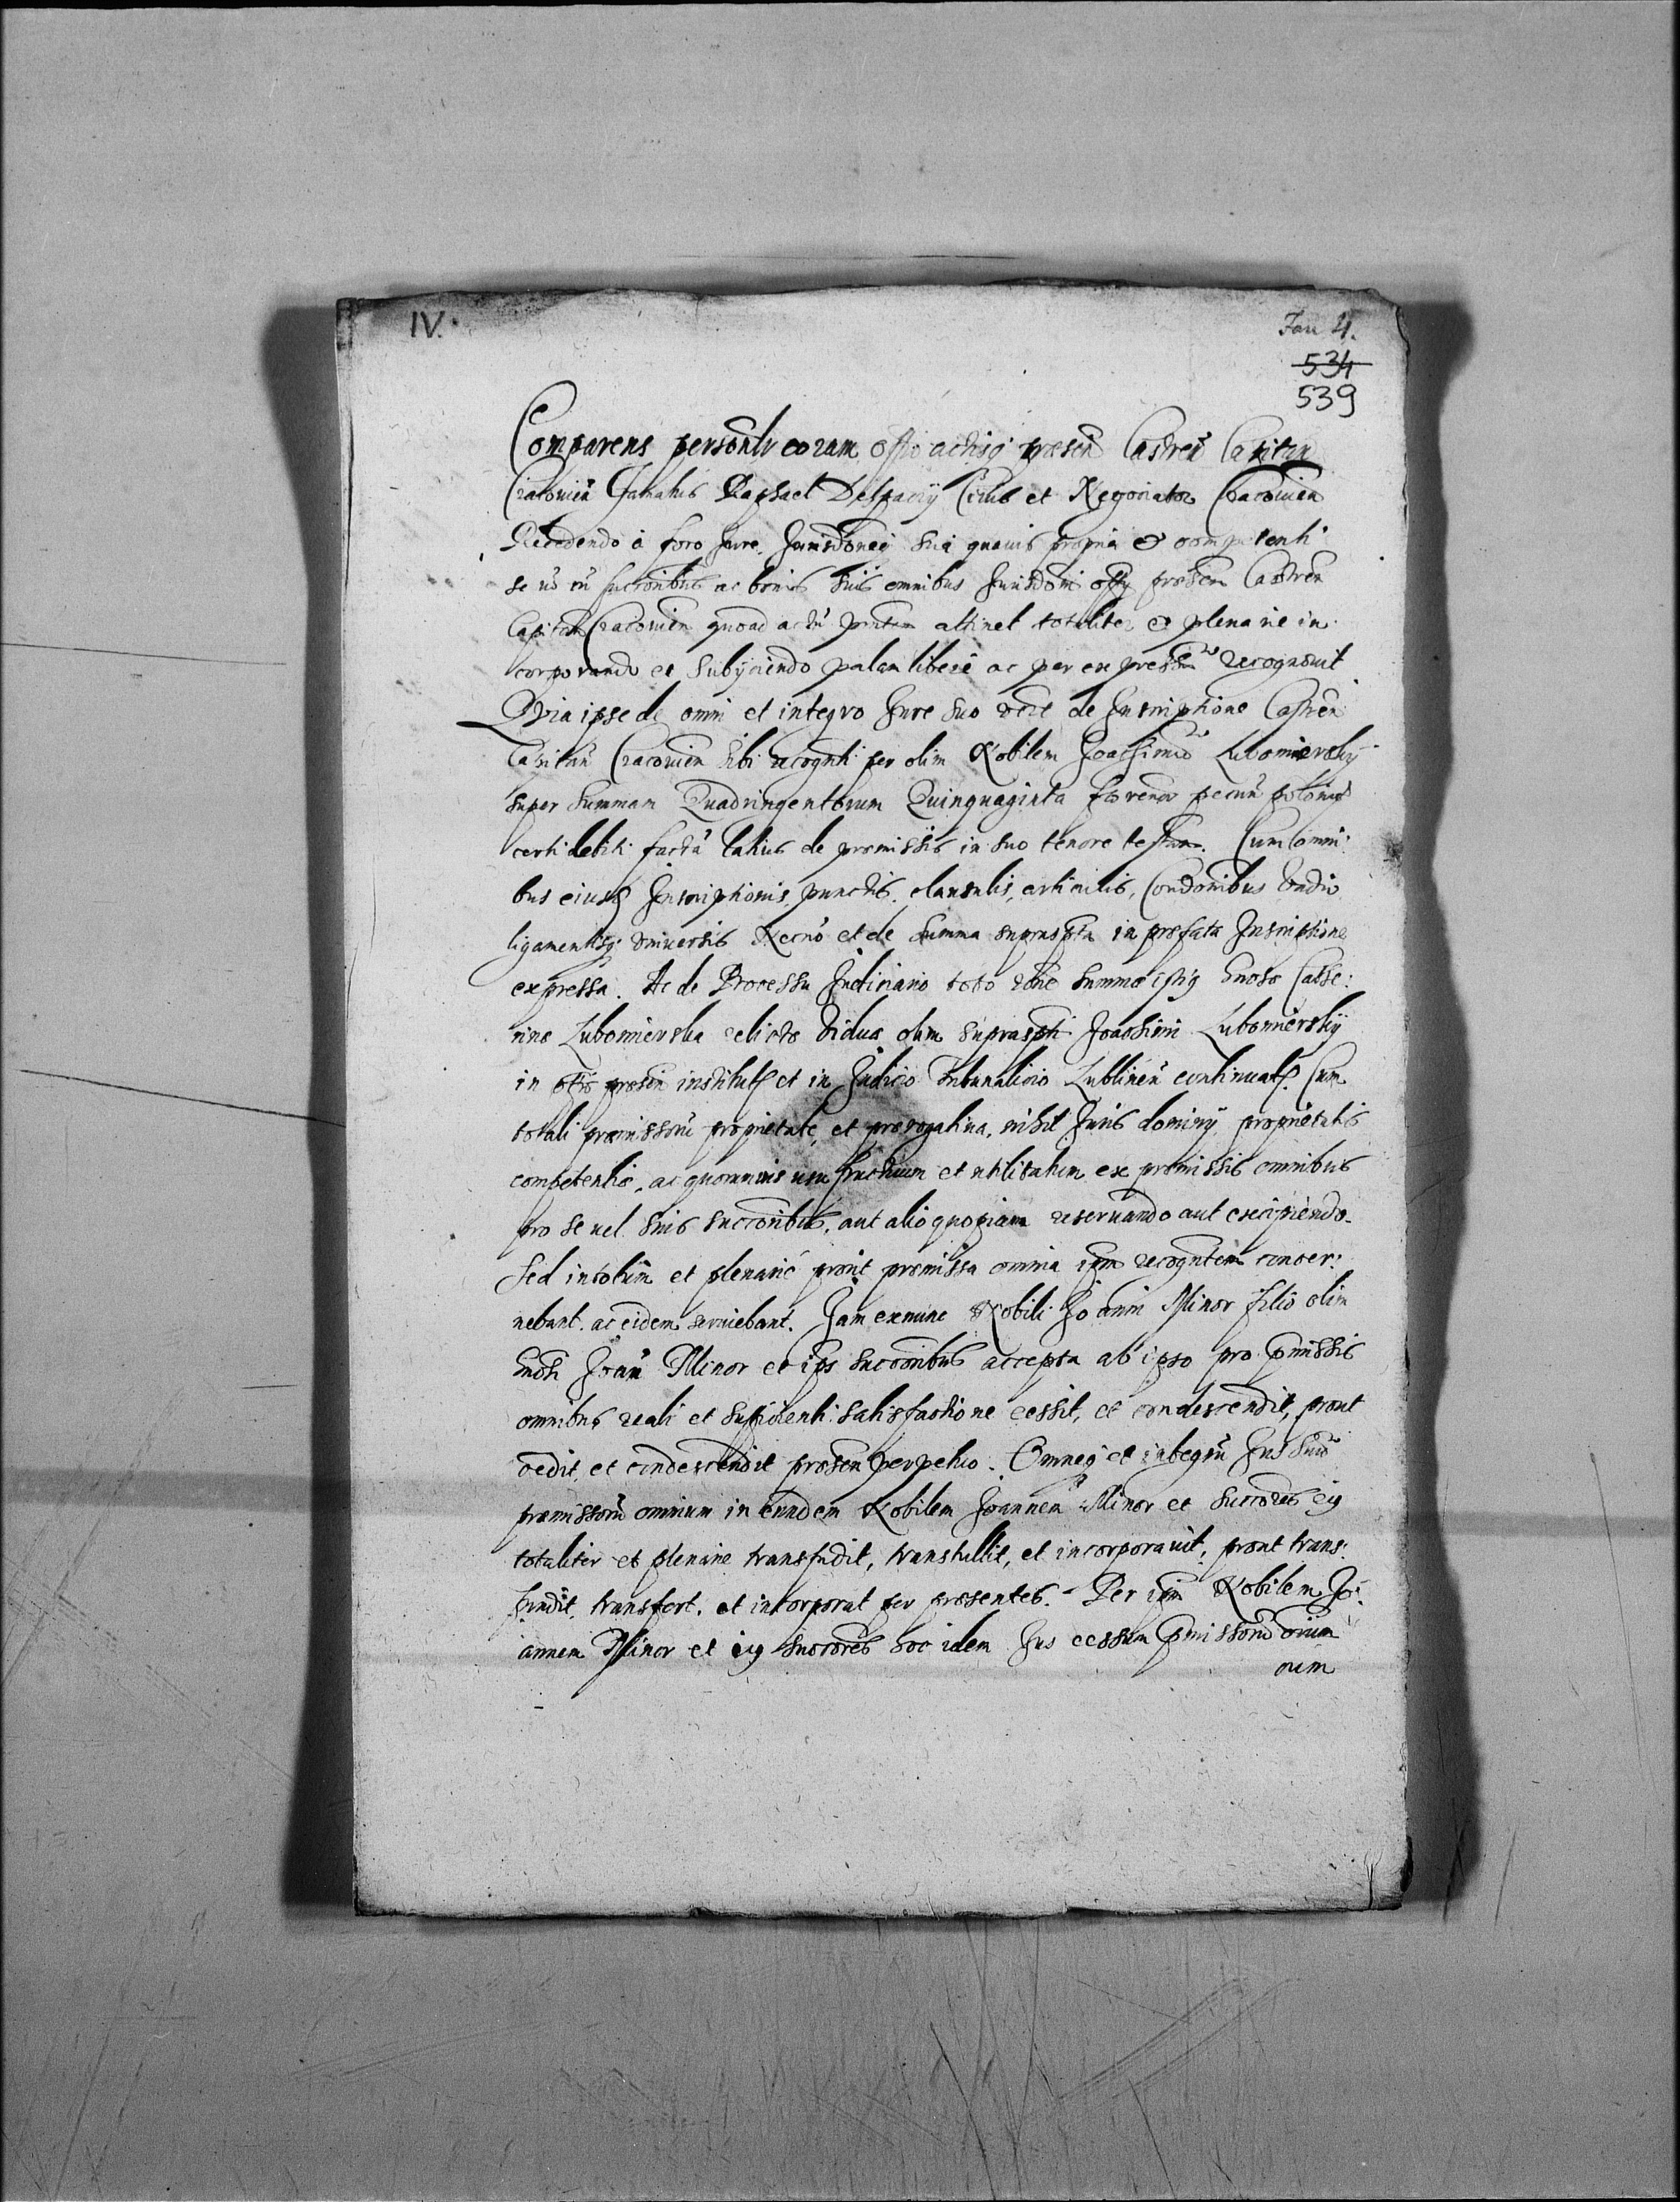 IV.
Fan 4.
534
539
Comparens personlr coram offo actisq presen Castren Capitan
Cracovien Famatus Raphael Delpacij Civis et Negociator Cracovien
Recedendo à foro Jure, Jurisdoneq sua quavis propria et competenti
se vo cu succoribus ac bonis suis omnibus Jurisdoni offy presen Castren
Capitan Cracovien quoad actu pntem attinet totaliter et plenarie in
corporando et subijciendo palam libere ac per expressum recognovit
Quia ipse de omni et integro Jure suo de Inscriptione Castren
Capitan Cracovien sibi recognti per olim Nobilem Joachimu Lubomierskij
super summam Quadringentorum Quinquaginta florenor pecun polonic
certi debiti facta latius de premissis in suo tenore testan. Cum omni
bus eiusq Inscriptionis punctis, clausulis, articulis, Condonibus Vadio
ligamentisq universis Necno et de summa suprascpta in prefata Inscriptione
expressa. Ac de Processu Judiciario toto rone summe istiq Cathe:
rine Lubomierska relicte Vidua olim suprascpti Joachimi Lubomierskij
in offo presen institut et in Judicio Tribunalicio Lublinen continuat. Cum
totali premissoru proprietate, et prerogativa, nihil Juris dominij proprietatis
competentie, ac quorumvis usu fructuum et utilitatum ex premissis omnibus
pro se vel suis succoribus, aut alio quopiam reservando aut excipiendo.
Sed in totum et plenarie prout premissa omnia ipm recogntem concer:
nebant ac eidem serviebant. Jam exnunc Nobili Joanni Minor filio olim
Joan Minor et ips succoribus accepta ab ipso pro pmissis
omnibus reali et sufficienti satisfactione cessit, et condescendit, prout
cedit et condescendit presen perpetuo. Omneq et integru Jus suu
premissoru omnium in eundem Nobilem Joannem Minor et succores eiq
totaliter et plenarie transfudit, transtullit, et incorporavit, prout trans:
fundit, transfert, et incorporat per presentes. Per ipm Nobilem Jo:
annem Minor et eiq succores hoc idem Jus cessum pmissoru oium
oium